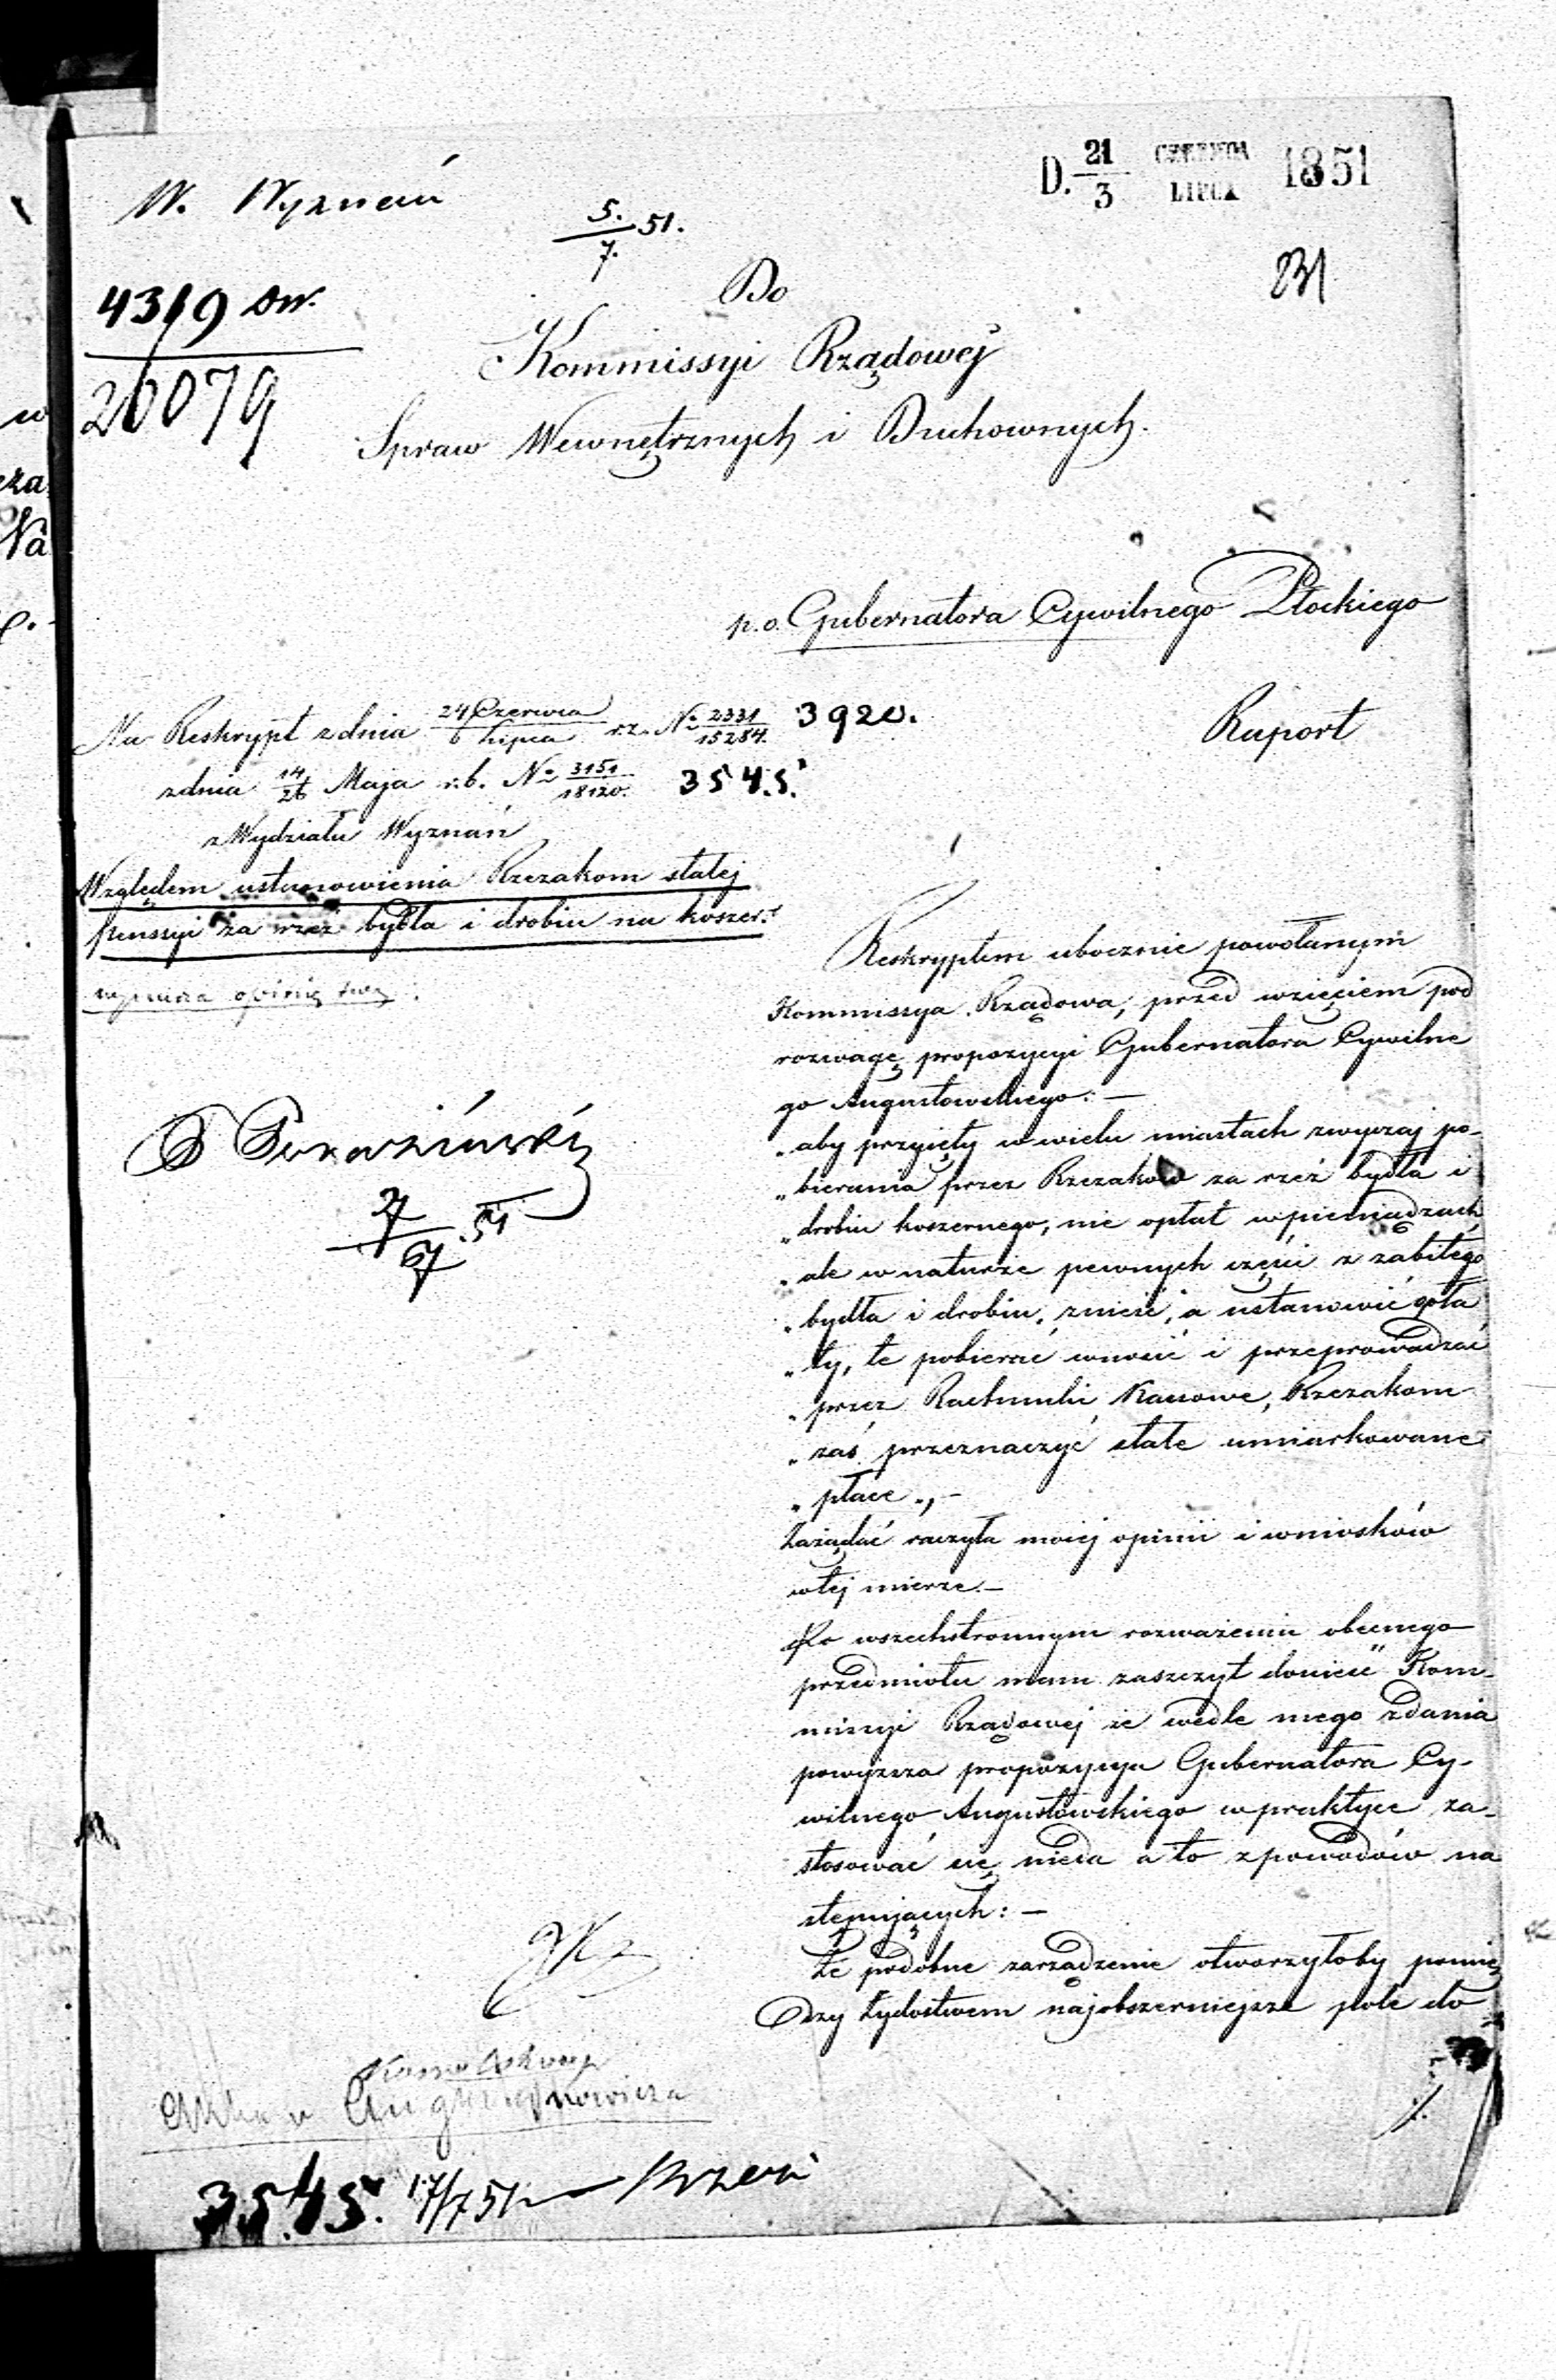 D. 21/3 CZERWCA LIPCA 1851
W. Wyznań
5./7. 51.
231
4319 Dw.
20079
Do
Kommissyi Rządowej
Spraw Wewnętrznych i Duchownych.
p.o. Gubernatora Cywilnego Płockiego
Raport
Na Reskrypt z dnia 24 Czerwca/6 Lipca r.z. No 2331/15284. 3920.
z dnia 14/26 Maja r.b. No 3151/18120. 3545.
z Wydziału Wyznań
Względem ustanowienia Rzezakom stałej
pensyi za rzeź bydła i drobiu na koszer.
wymienia opinię swą.
27/6 51
Reskryptem ubocznie powołanym
Kommissya Rządowa, przed wzięciem pod
rozwagę propozycyi Gubernatora Cywilne
go Augustowskiego: —
„ aby przyięty w wielu miastach zwyczaj po-
„ bierania przez Rzezaków za rzeź bydła i
„ drobiu koszernego, nie opłat w pieniądzach
„ ale w naturze pewnych części z zabitego
„ bydła i drobiu, znieść, a ustanowić opła
„ ty, te pobierać wnosić i przeprowadzać
„ przez Rachunki Kassowe, Rzezakom
„ zaś przeznaczyć stałe umiarkowane
„ płace „, —
Zażądać raczyła moiej opinii i wniosków
w tej mierze. —
Po wszechstronnym rozważeniu obecnego
przedmiotu mam zaszczyt donieść Kom-
missyi Rządowej że wedle mego zdania
powyższa propozycya Gubernatora Cy-
wilnego Augustowskiego w praktyce za-
stosować się nieda a to z powodów na
stępujących: —
Że podobne zarządzenie otworzyłoby pomię
dzy Żydostwem najobszerniejsze pole do
3545. 17/7 51